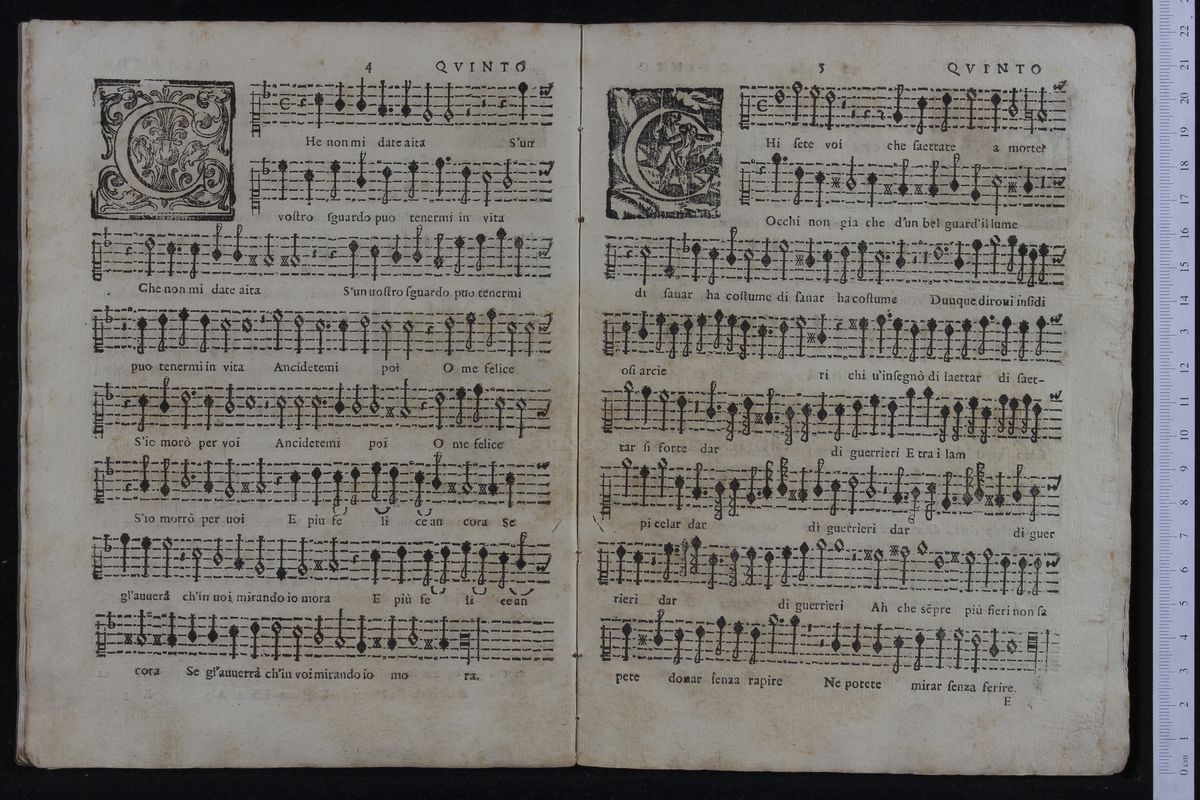 4 QVINTO
C
He non mi date aita S'un
vostro sguardo puo tenermi in vita
Che non mi date aita S'un uostro sguardo puo tenermi
puo tenermi in vita Ancidetemi poi O me felice
S'io morò per voi Ancidetemi poi O me felice
S'io morrò per uoi E piu fe li ce an cora Se
gl'auuerà ch'in uoi mirando io mora E più fe li ce an
cora Se gl'auuerrà ch'in voi mirando io mo ra.
5 QVINTO
C
Hi sete voi che saettate a morte?
Occhi non gia che d'un bel guard'il lume
di sanar ha costume di sanar ha costume Dunque diroui insidi
osi arcie ri chi u'insegnò di saettar di saet-
tar si forte dar di guerrieri E tra i lam
pi celar dar di guerrieri dar di guer
rieri dar di guerrieri Ah che sēpre più fieri non sa
pete donar senza rapire Ne potete mirar senza ferire.
E
0 cm 1 2 3 4 5 6 7 8 9 10 11 12 13 14 15 16 17 18 19 20 21 22